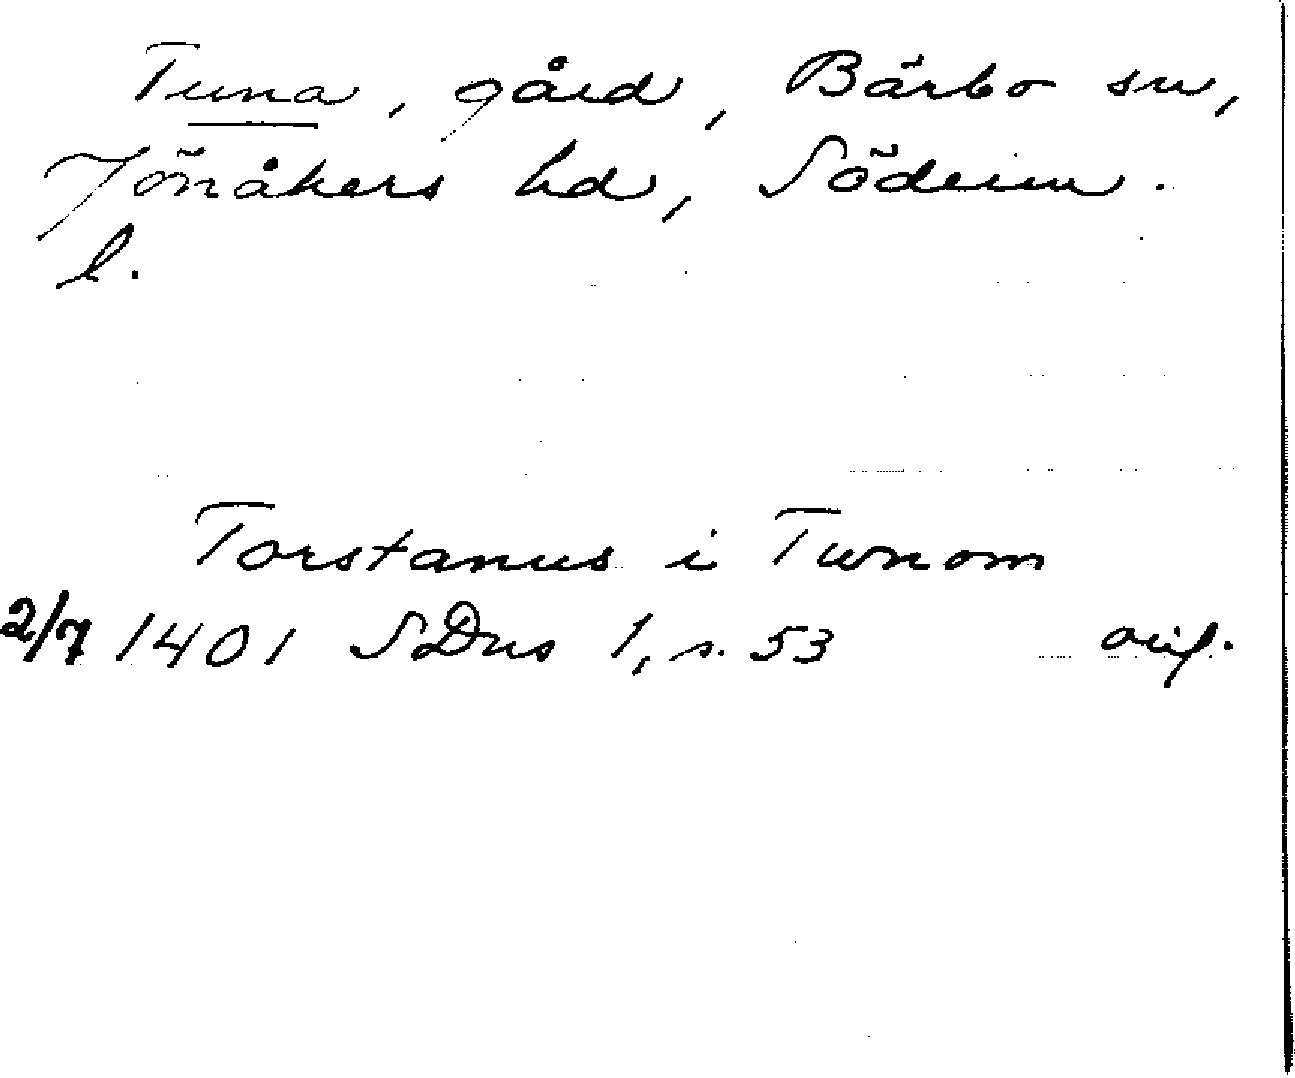 Tuna, gård, Bärbo sn,
Jönåkers hd, Söderm.
l.
Torstanus i Twnom
2/7 1401 SDns 1, s. 53 orig.